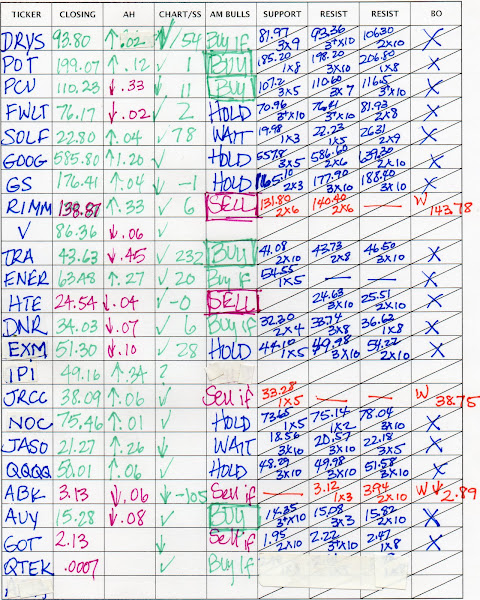 TICKER CLOSING AH CHART/SS AM BULLS SUPPORT RESIST RESIST BO
DRYS 93.80 ↑.02 ↑/54 Buy if 81.97 3x9 93.36 3*x10 106.30 2x10 X
POT 199.07 ↑.12 ✓ 1 BUY 185.20 1x8 198.20 3*x10 206.80 1x8 X
PCU 110.23 ↓.33 11 BUY 107.2 3x5 110.60 3x7 116.5 3*x10 X
FWLT 76.17 ↓.02 ✓ 2 HOLD 70.96 3*x10 76.41 3*x10 81.93 2x8 X
SOLF 22.80 ↑.04 ✓ 78 WAIT 19.98 1x3 22.23 1x5 26.31 2x9 X
GOOG 585.80 ↑1.20 ✓ HOLD 557.8 3x5 586.60 2x6 639.20 2x10 X
GS 176.41 ↑.04 ↓ -1 HOLD 165.10 2x3 177.90 3x10 188.40 3x10 X
RIMM 138.87 ↑.33 ✓ 6 SELL 131.80 2x6 140.40 2x6 — W 143.78
V 86.36 ↓.06 ✓
TRA 43.63 ↓.45 ✓ 232 BUY 41.08 2x10 43.73 2x8 46.50 3x10 X
ENER 63.48 ↑.27 ✓ 20 Buy if 54.55 1x5 — — X
HTE 24.54 ↓.04 ✓ -0 SELL 24.63 3x10 25.51 2x10 X
DNR 34.03 ↓.07 ✓ 6 Buy if 32.30 2x4 33.74 3x8 36.62 1x8 X
EXM 51.30 ↓.10 ✓ 28 HOLD 44.10 1x5 49.98 3x10 54.27 2x10 X
IPI 49.16 ↑.34 ?
JRCC 38.09 ↑.06 ✓ Sell if 33.28 1x5 — — W 38.75
NOC 75.46 ↑.01 ✓ HOLD 73.65 1x5 75.14 1x2 78.04 3x10 X
JASO 21.27 ↑.26 ↓ WAIT 18.56 3x10 20.57 2x10 22.18 3x5 X
QQQQ 50.01 ↑.06 ✓ HOLD 48.29 3x10 49.98 3x10 51.58 3x10 X
ABK 3.13 ↓.06 ↓ -105 Sell if — 3.12 1x3 3.94 2x10 W↓ 2.89
AUY 15.28 ↓.08 ✓ BUY 14.35 3*x10 15.08 3x3 15.82 2x10 X
GOT 2.13 ↓ Sell if 1.95 2x10 2.22 3*x10 2.47 1x8 X
QTEK .0007 ✓ Buy if